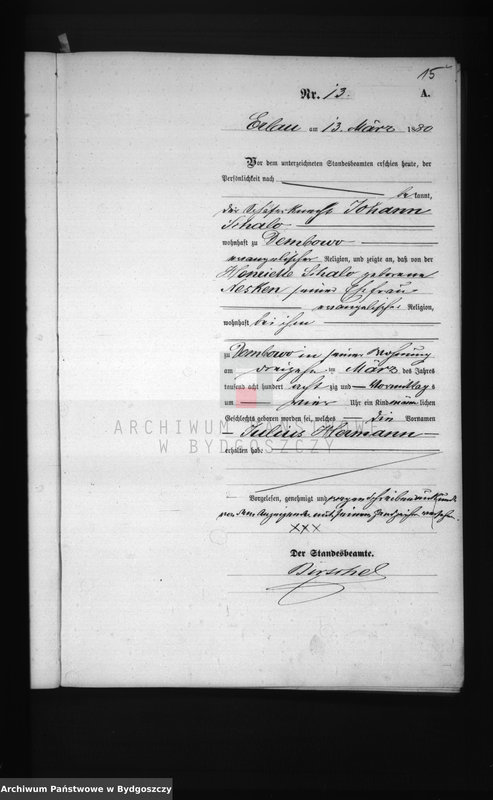 15
Nr. 13. A.
Erlau am 13. März 1880
Vor dem unterzeichneten Standesbeamten erschien heute, der
Persönlichkeit nach
bekannt,
der Schäferknecht Johann
Schalo
wohnhaft zu Dembowo
evangelischer Religion, und zeigte an, daß von der
Henriette Schalo geborene
Nesken seiner Ehefrau
evangelischer Religion,
wohnhaft bei ihm
zu Dembowo in seiner Wohnung
am dreizehnten März des Jahres
tausend acht hundert achtzig und Vormittags
um vier Uhr ein Kind männlichen
Geschlechts geboren worden sei, welches die Vornamen
Julius Hermann
erhalten habe
ARCHIWUM PAŃSTWOWE
W BYDGOSZCZY
Vorgelesen, genehmigt und wegen Schreibensunkunde
von dem Anzeigenden mit seinem Handzeichen versehen.
XXX
Der Standesbeamte.
Archiwum Państwowe w Bydgoszczy